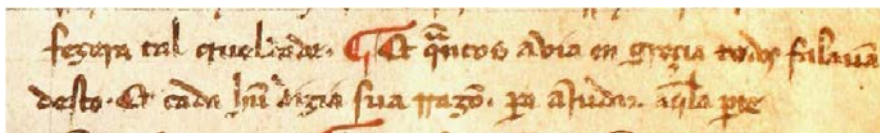 fezera tal crueldade. ¶ Et qñtos avia en greçia todos falauã
desto. Et cada hũ dizia sua rrazõ. pa aiudar. aq̃la pte